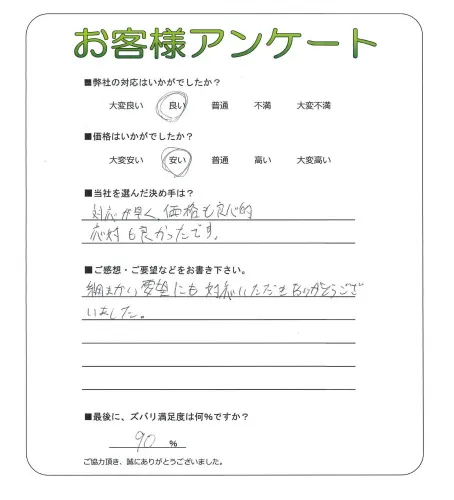 お客様アンケート
■弊社の対応はいかがでしたか？
大変良い 良い 普通 不満 大変不満
■価格はいかがでしたか？
大変安い 安い 普通 高い 大変高い
■当社を選んだ決め手は？
対応が早く、価格も良心的
応対も良かったです。
■ご感想・ご要望などをお書き下さい。
細まかい要望にも対応いただきありがとうござ
いました。
■最後に、ズバリ満足度は何％ですか？
90 %
ご協力頂き、誠にありがとうございました。